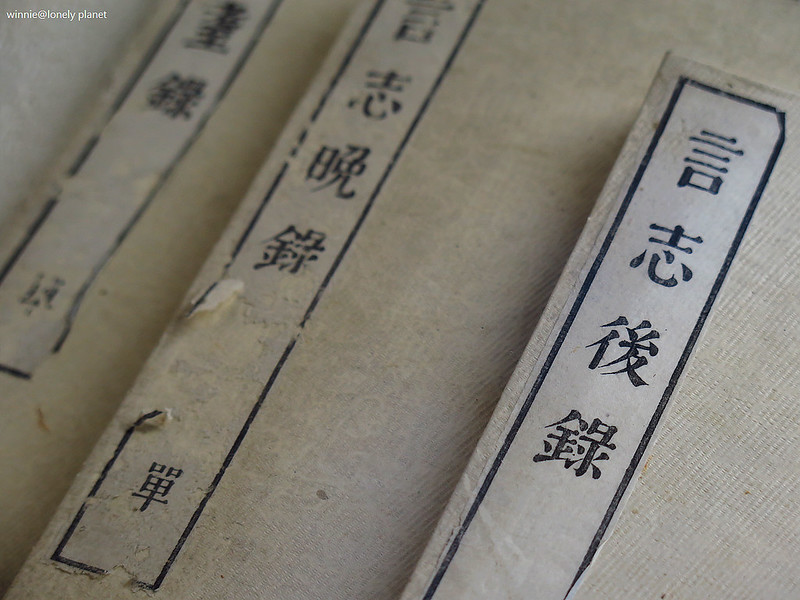 winnie@lonely planet
言志後錄
言志晩錄
單
耋錄